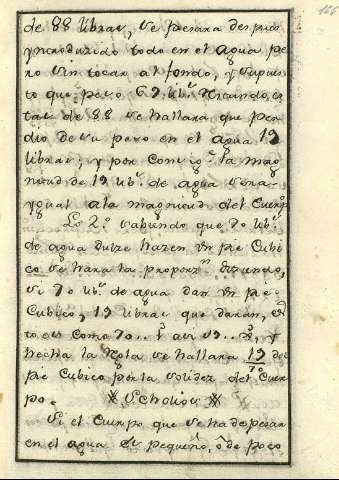 166
de 88 libras, se pesara despues
yntroduzido todo en el agua pe
ro sin tocar al fondo, y supues
to que peso 69 lib.s restando es
tas de 88 se hallara que per
dio de su peso en el agua 19
libras; y por consig.te la mag
nitud de 19 lib.s de agua sera
ygual a la magnitud del Cuerpo
Lo 2.º sabiendo que 70 lib.s
de agua dulze hazen un pie Cubi
co se hara la proporz.n diziendo,
si 70 lib.s de agua dan un pie
Cubico, 19 libras que daran, es
to es como 70.. 1 asi 19..
hecha la Regla se hallara 19/70 de
pie Cubico por la solidez del Cuer
po. Scholios
Si el Cuerpo que se ha de pesar
en el agua es pequeño, ô de poco